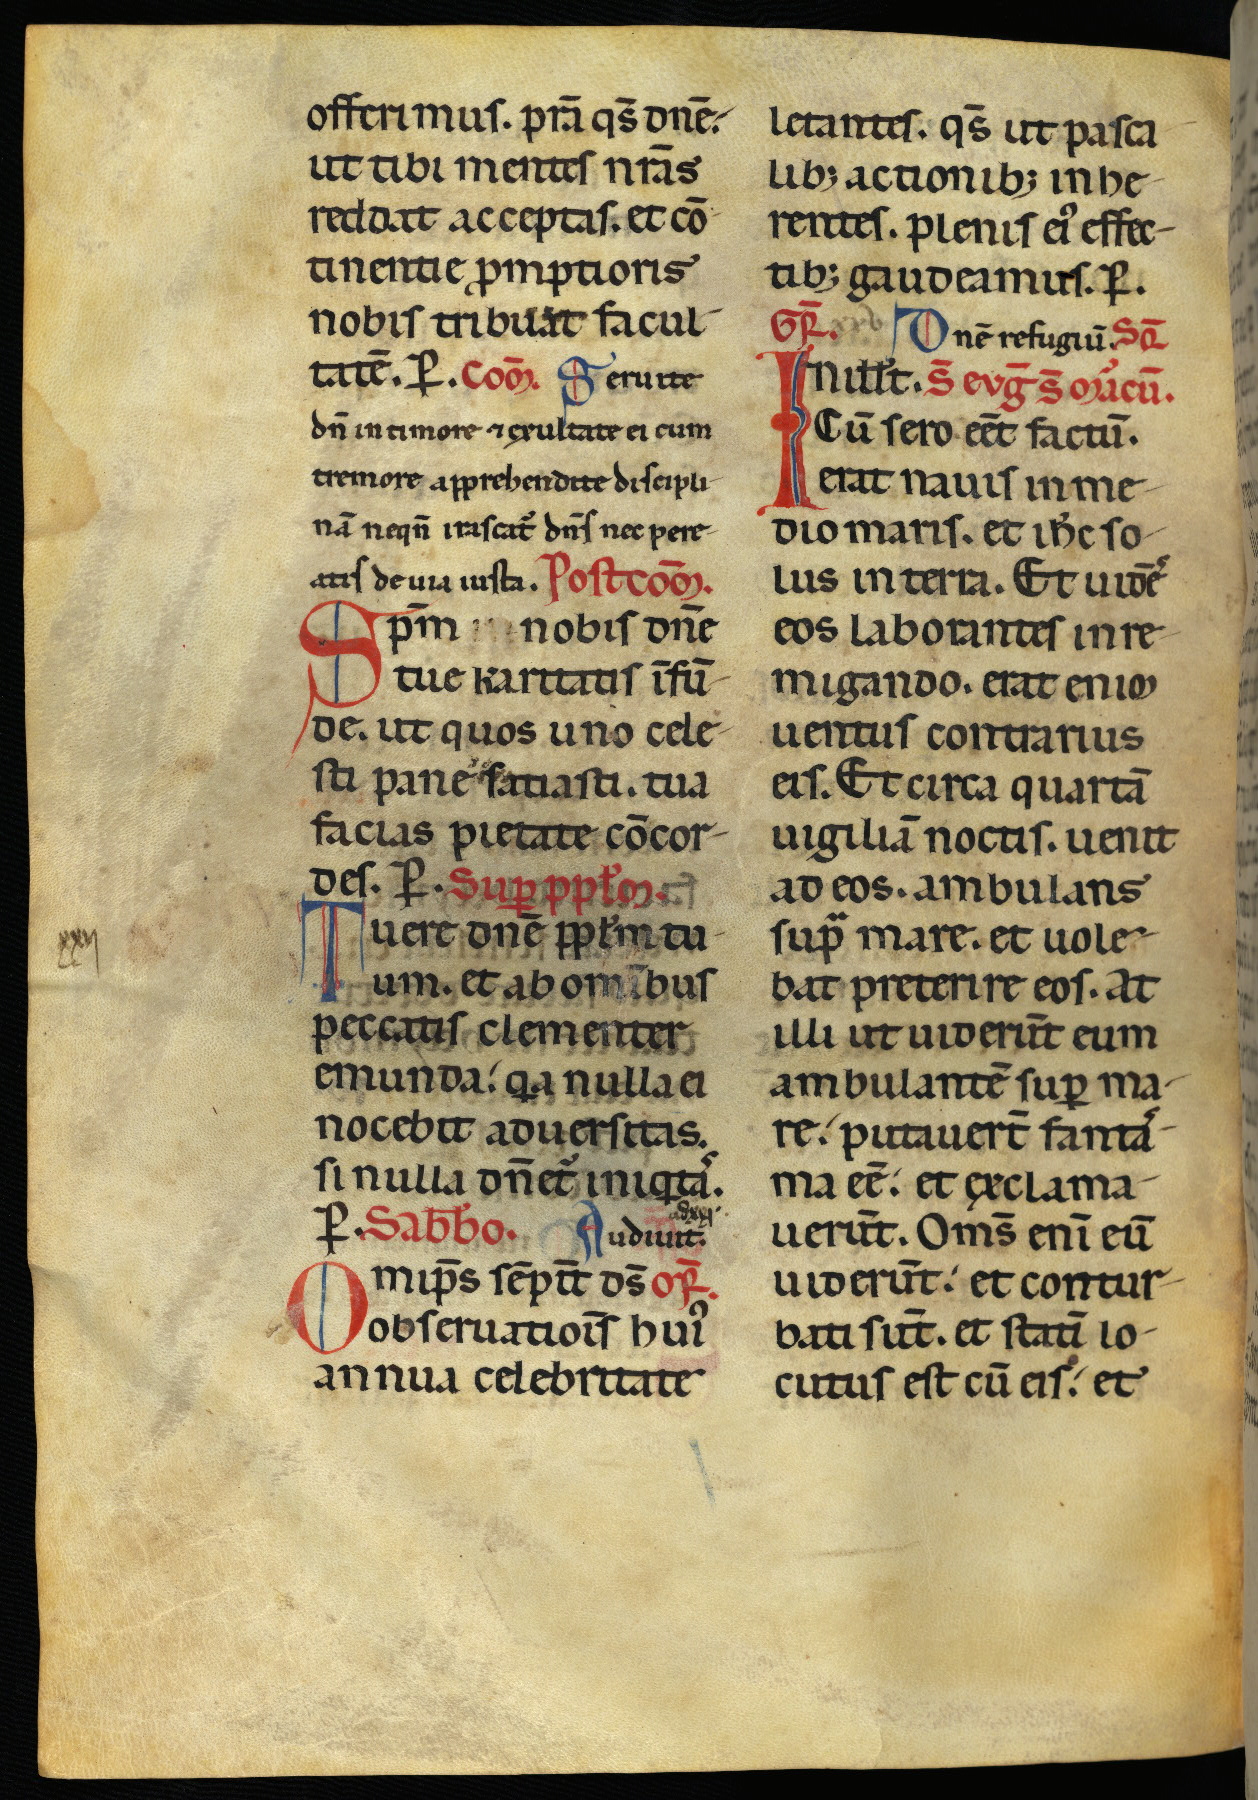 offerimus. p̄ra q̄s dn̄e.
ut tibi mentes nr̄as
reddat acceptas. et cō-
tinentie ꝓmptioris
nobis tribuat facul-
tatē. P̱. Cōm. Seruite
dn̄ in timore ⁊ exultate ei cum
tremore apprehendite discipli-
nā neqn̄ irascat᷑ dn̄s nec pere-
atis de uia iusta. Postcōm.
Sp̄m nobis dn̄e
tue karitatis īfū-
de. ut quos uno cele-
sti pane satiasti. tua
facias pietate cōcor-
des. P̱. Suꝑ ppl̄m.
Tuere dn̄e ppl̄m tu-
um. et ab omībus
peccatis clementer
emunda. qa nulla ei
nocebit aduersitas.
si nulla dn̄et᷑ iniqtas.
P̱. Sabb̄o. Audiuit.
Omip̄s sēpit̄ ds̄ or̄.
obseruatiōis huiꝰ
annua celebritate
letantes. qs̄ ut pasca
libꝫ actionibꝫ inhe-
rentes. plenis eiꝰ effec-
tibꝫ gaudeamus. P̱.
Gr̄. Dnē refugiū. Sc̄
In ill̄ t. S̄ evḡ s̄ marcū.
Cū sero eēt factū.
erat nauis in me-
dio maris. et ih̄c so-
lus in terra. Et uidēs
eos laborantes in re-
migando. erat enim
uentus contrarius
eis. Et circa quartā
uigiliā noctis. uenit
ad eos. ambulans
supᷓ mare. et uole-
bat preterire eos. At
illi ut uiderūt eum
ambulantē suꝑ ma-
re. putauer̄t fantas-
ma eē. et exclama-
uerūt. Om̄s enī eū
uiderūt. et contur-
bati sūt. et statī lo-
cutus est cū eis. et
xxvj